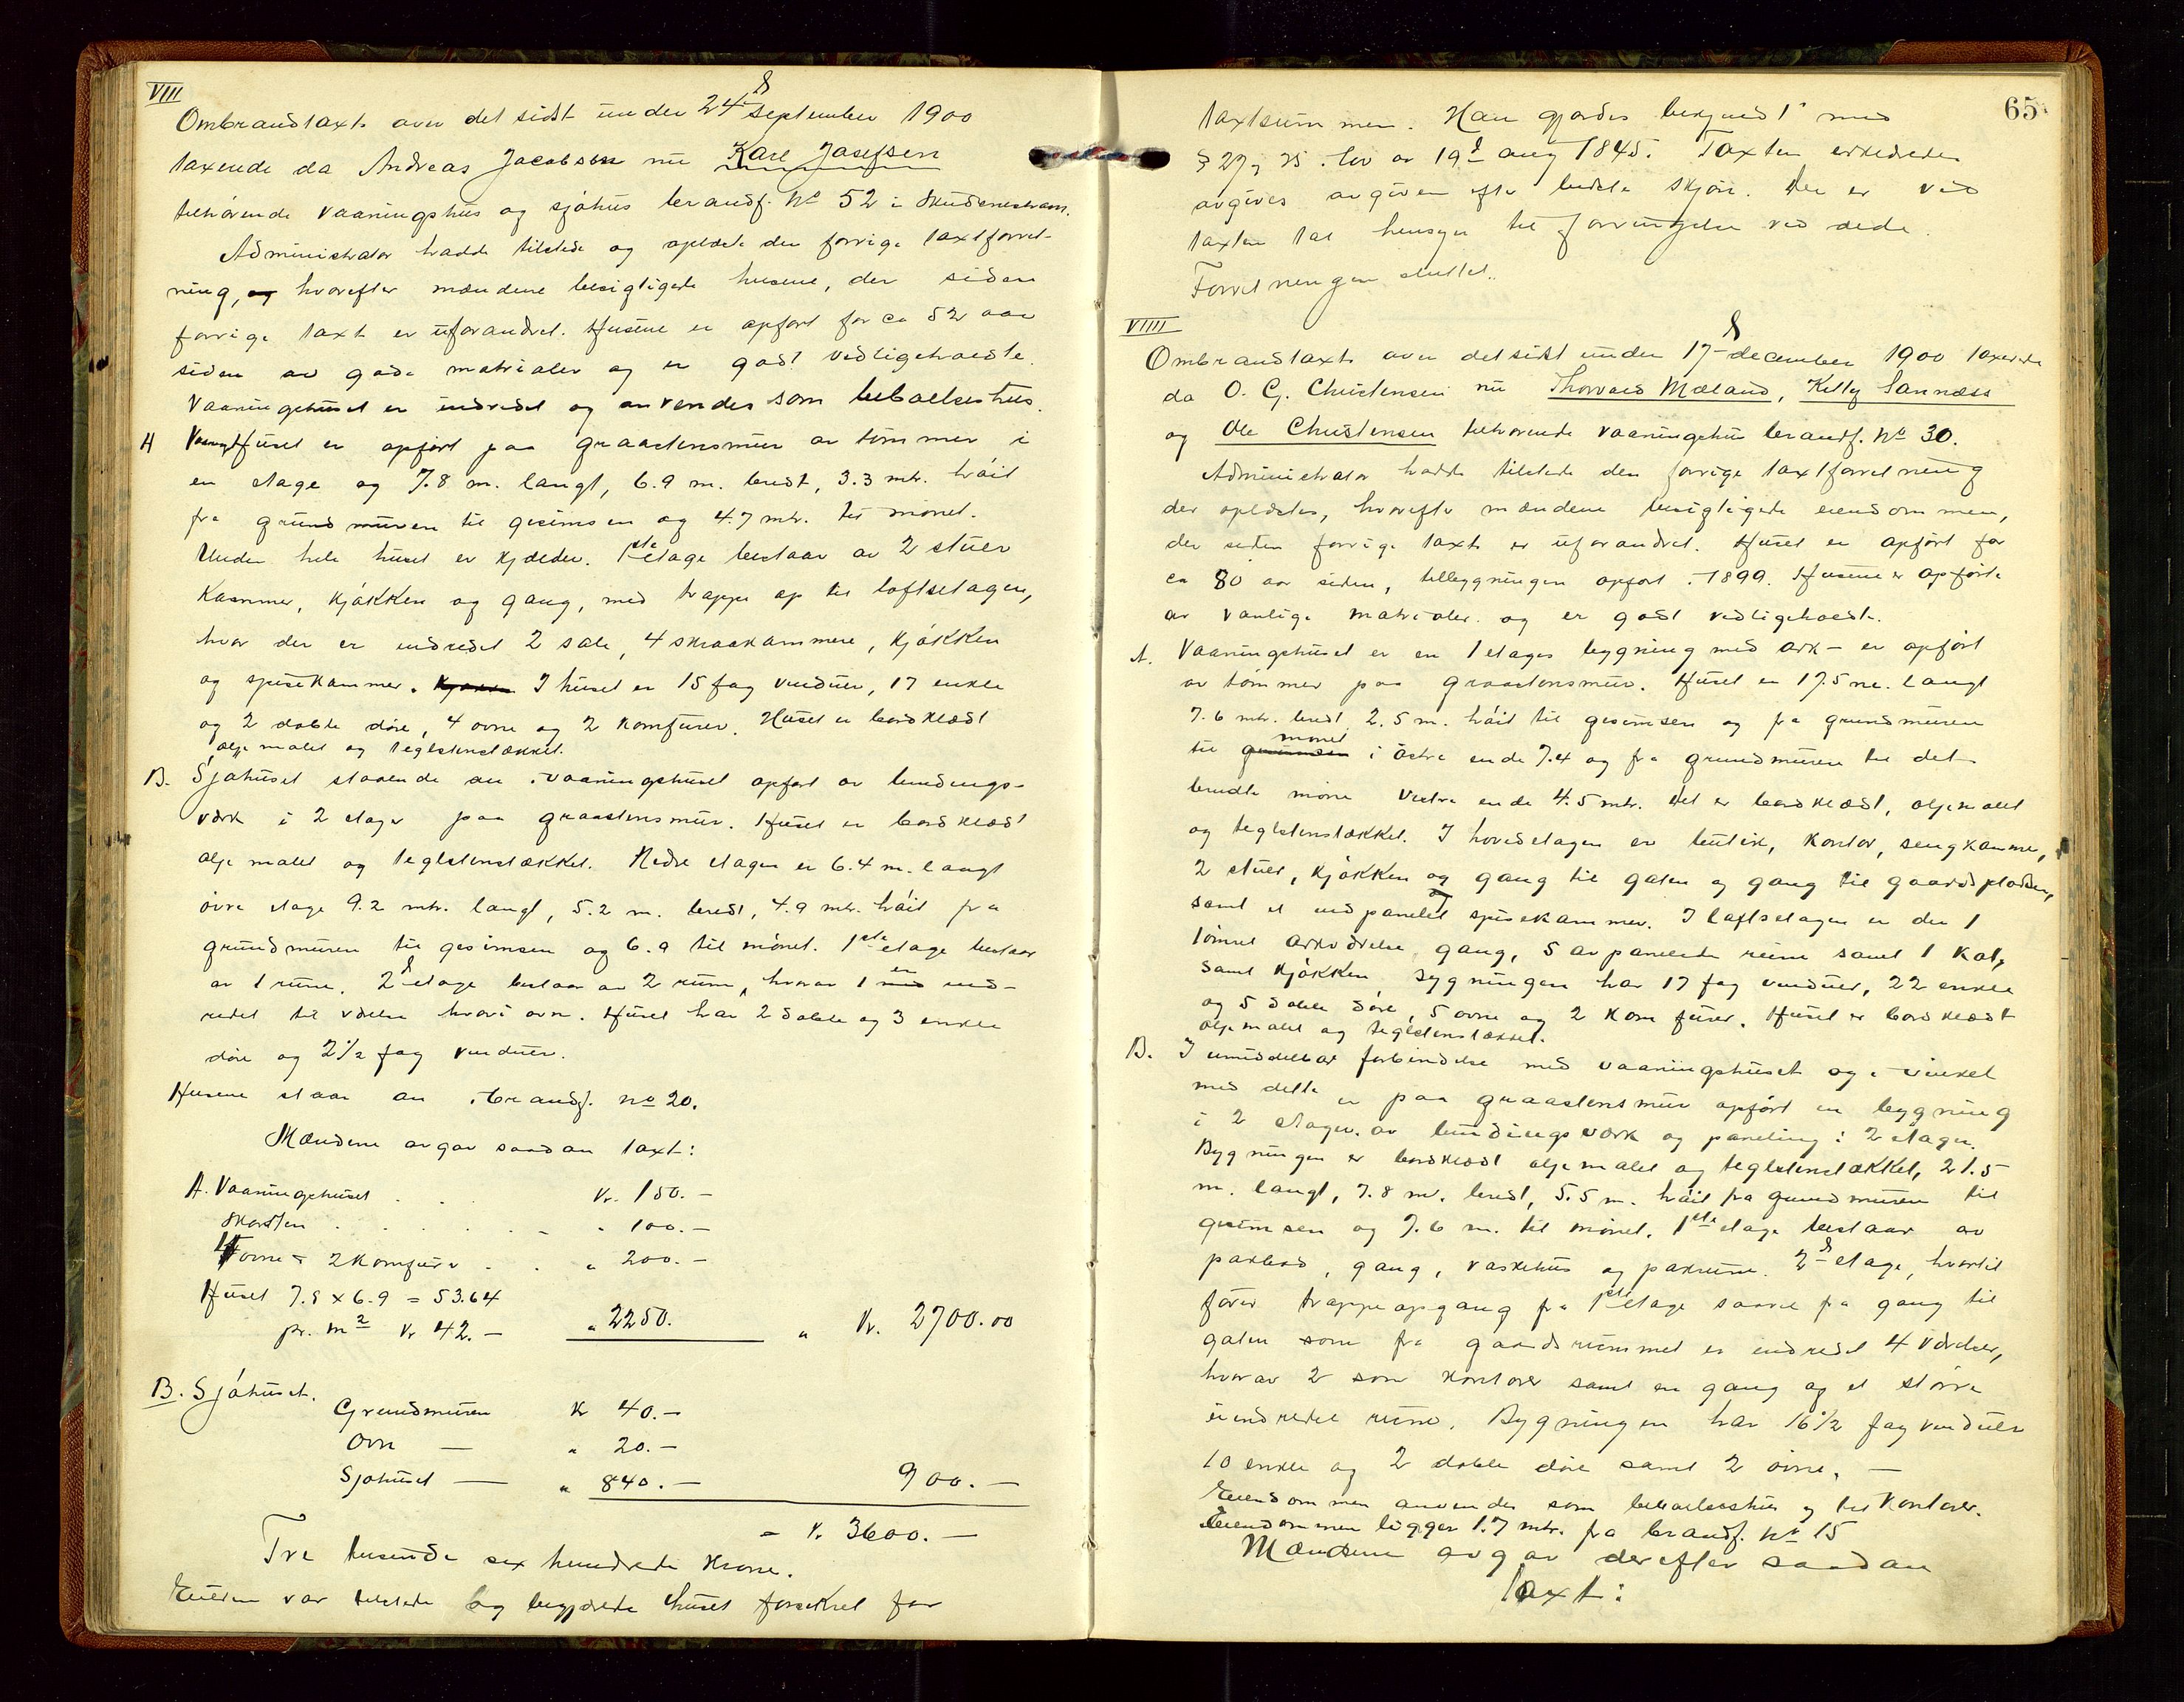 VIII
Ombrandtaxt over det sidst under 24d september 1900
taxerede da Andreas Jacobsen nu Karl Josefsen
tilhørende vaaningshus og sjøhus brandf. No 52 i Skudeneshavn.
Administrator hadde tilstede og oplæste den forrige taxtforret-
ning, og hvorefter mændene besigtigede husene, der siden
forrige taxt er uforandret. Husene er opført for ca 52 aar
siden av gode matrialer og er godt vedligeholdte.
Vaaningshuset er indredet og anvendes som beboelseshus.
A Vaaningshuset er opført paa graastensmur av tømmer i
en etage og 7.8 m. langt, 6.9 m. bredt, 3.3 mtr. høit
fra grundmuren til gesimsen og 4.7 mtr. til mønet.
Under hele huset er kjælder. 1ste etage bestaar av 2 stuer
Kammer, kjøkken og gang, med trappe op til loftsetagen,
hvor der er indredet 2 sale, 4 skraakammere, kjøkken
og spisekammer. I huset er 15 fag vinduer, 17 enkle
og 2 doble døre, 4 ovne og 2 komfurer. Huset er bordklædt
oljemalet og teglstenstækket.
B. Sjøhuset staaende an i vaaningshuset opført av bindings-
værk i 2 etager paa graastensmur. Huset er bordklædt
oljemalet og teglstenstækket. Nedre etagen er 6.4 m. langt
øvre etage 9.2 mtr. langt, 5.2 m. bredt, 4.9 mtr. høit fra
grundmuren til gesimsen og 6.9 til mønet. 1ste etage bestaar
av 1 rum. 2d etage bestaar av 2 rum, hvorav 1 er ind-
redet til værelse hvori ovn. Huset har 2 doble og 3 enkle
døre og 2 1/2 fag vinduer.
Husene staar an i brandf. no 20.
Mændene avgav saadan taxt:
A. Vaaningshuset . . . Kr. 150.-
Skorsten . . . . . " 100.-
4 ovne + 2 komfurer . . " 200.-
Huset 7.8 x 6.9 = 53.64
pr. m2 Kr 42.- " 2250. " Kr. 2700.00
B. Sjøhuset.
Grundmuren Kr 40.-
Ovn — " 20.-
Sjøhuset — " 840.- 900.-
= Kr. 3600.-
Tre tusinde sex hundrede Krone.
Eieren var tilstede og begjærede huset forsikret for
65
taxtsummen. Han gjordes bekjendt med
§ 27, 25 i lov av 19d aug 1845. Taxten erklæredes
avgives avgiven efter bedste skjøn. Der er ved
taxten tat hensyn til forringelse ved ælde.
Forretningen sluttet.
VIIII
Ombrandtaxt over det sidst under 17d december 1900 taxerede
da O. G. Christensen nu Thorvald Mæland, Kitty Sannæss
og Ole Christensen tilhørende vaaningshus brandf. No 30.
Administrator hadde tilstede den forrige taxtforretning
der oplæstes, hvorefter mændene besigtigede eiendommen,
der siden forrige taxt er uforandret. Huset er opført for
ca 80 aar siden, tilbygningen opført i 1899. Husene er opførte
av vanlige matrialer og er godt vedligeholdt.
A. Vaaningshuset er en 1 etages bygning med ark - er opført
av tømmer paa graastensmur. Huset er 17.5 m. langt
7.6 mtr. bredt, 2.5 m. høit til gesimsen og fra grundmuren
til mønet i østre ende 7.4 og fra grundmuren til det
brudte møne vestre ende 4.5 mtr. Det er bordklædt, oljemalet
og teglstenstækket. I hovedetagen er butik, kontor, sengkammer,
2 stuer, kjøkken og gang til gaten og gang til gaardspladsen,
samt et indpanelet spisekammer. I loftsetagen er der 1
tømret arkværelse, gang, 5 avpanelede rum samt 1 kot,
samt kjøkken. Bygningen har 17 fag vinduer, 22 enkle
og 5 doble døre, 5 ovne og 2 komfurer. Huset er bordklædt
oljemalet og teglstenstækket.
B. I umiddelbar forbindelse med vaaningshuset og i vinkel
med dette er paa graastensmur opført en bygning
i 2 etager av bindingsværk og paneling i 2 etager.
Bygningen er bordklædt oljemalet og teglstenstækket, 21.5
m. langt, 7.8 m. bredt, 5.5 m. høit fra grundmuren til
gesimsen og 7.6 m. til mønet. 1ste etage bestaar av
pakbod, gang, vaskehus og pakrum. 2d etage, hvortil
fører trappeopgang fra 1ste etage saavel fra gang til
gaten som fra gaardsrummet er indredet 4 værelser,
hvorav 2 som kontorer samt en gang og et større
uindredet rum. Bygningen har 16 1/2 fag vinduer
10 enkle og 2 doble døre samt 2 ovne. —
Eiendommen anvendes som beboelseshus og til kontorer.
Eiendommen ligger 1.7 mtr. fra brandf. No 15
Mændene avgav derefter saadan
taxt: